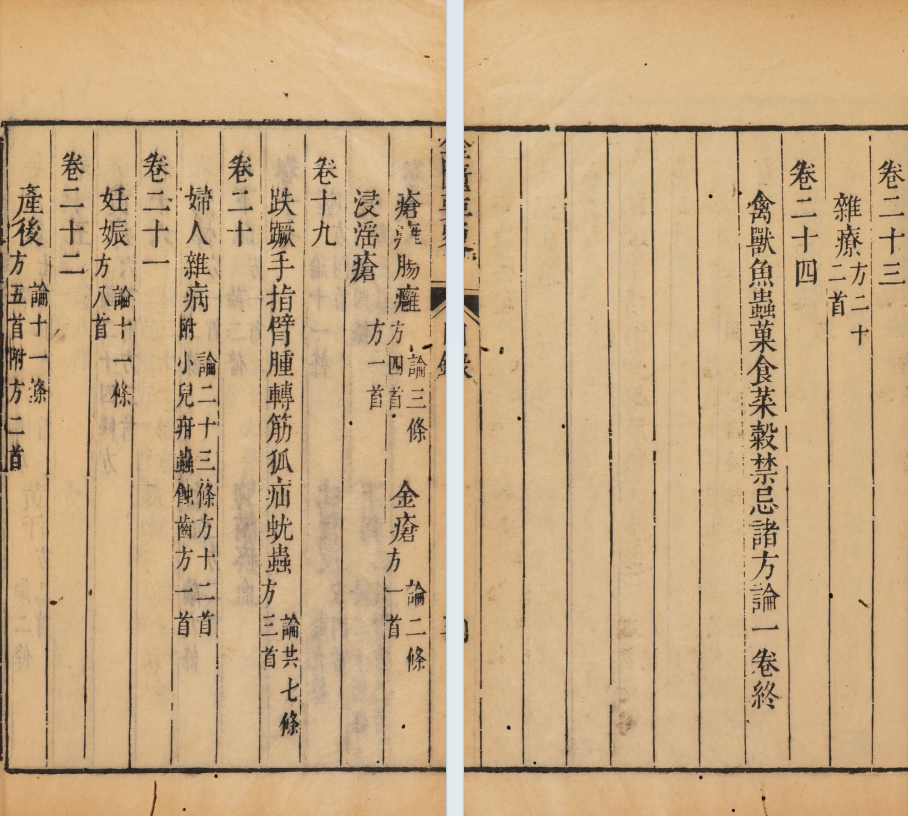 卷二十三
雜療方二十二首
卷二十四
禽獸魚蟲菓食菜穀禁忌諸方論一卷終
瘡癰腸癰論三條方四首 金瘡論二條方一首
浸淫瘡方一首
卷十九
趺蹶手指臂腫轉筋狐疝蚘蟲論共七條方三首
卷二十
婦人雜病論二十三條方十二首附小兒疳蟲蝕齒方一首
卷二十一
妊娠論十一條方八首
卷二十二
產後論十一條方五首附方二首